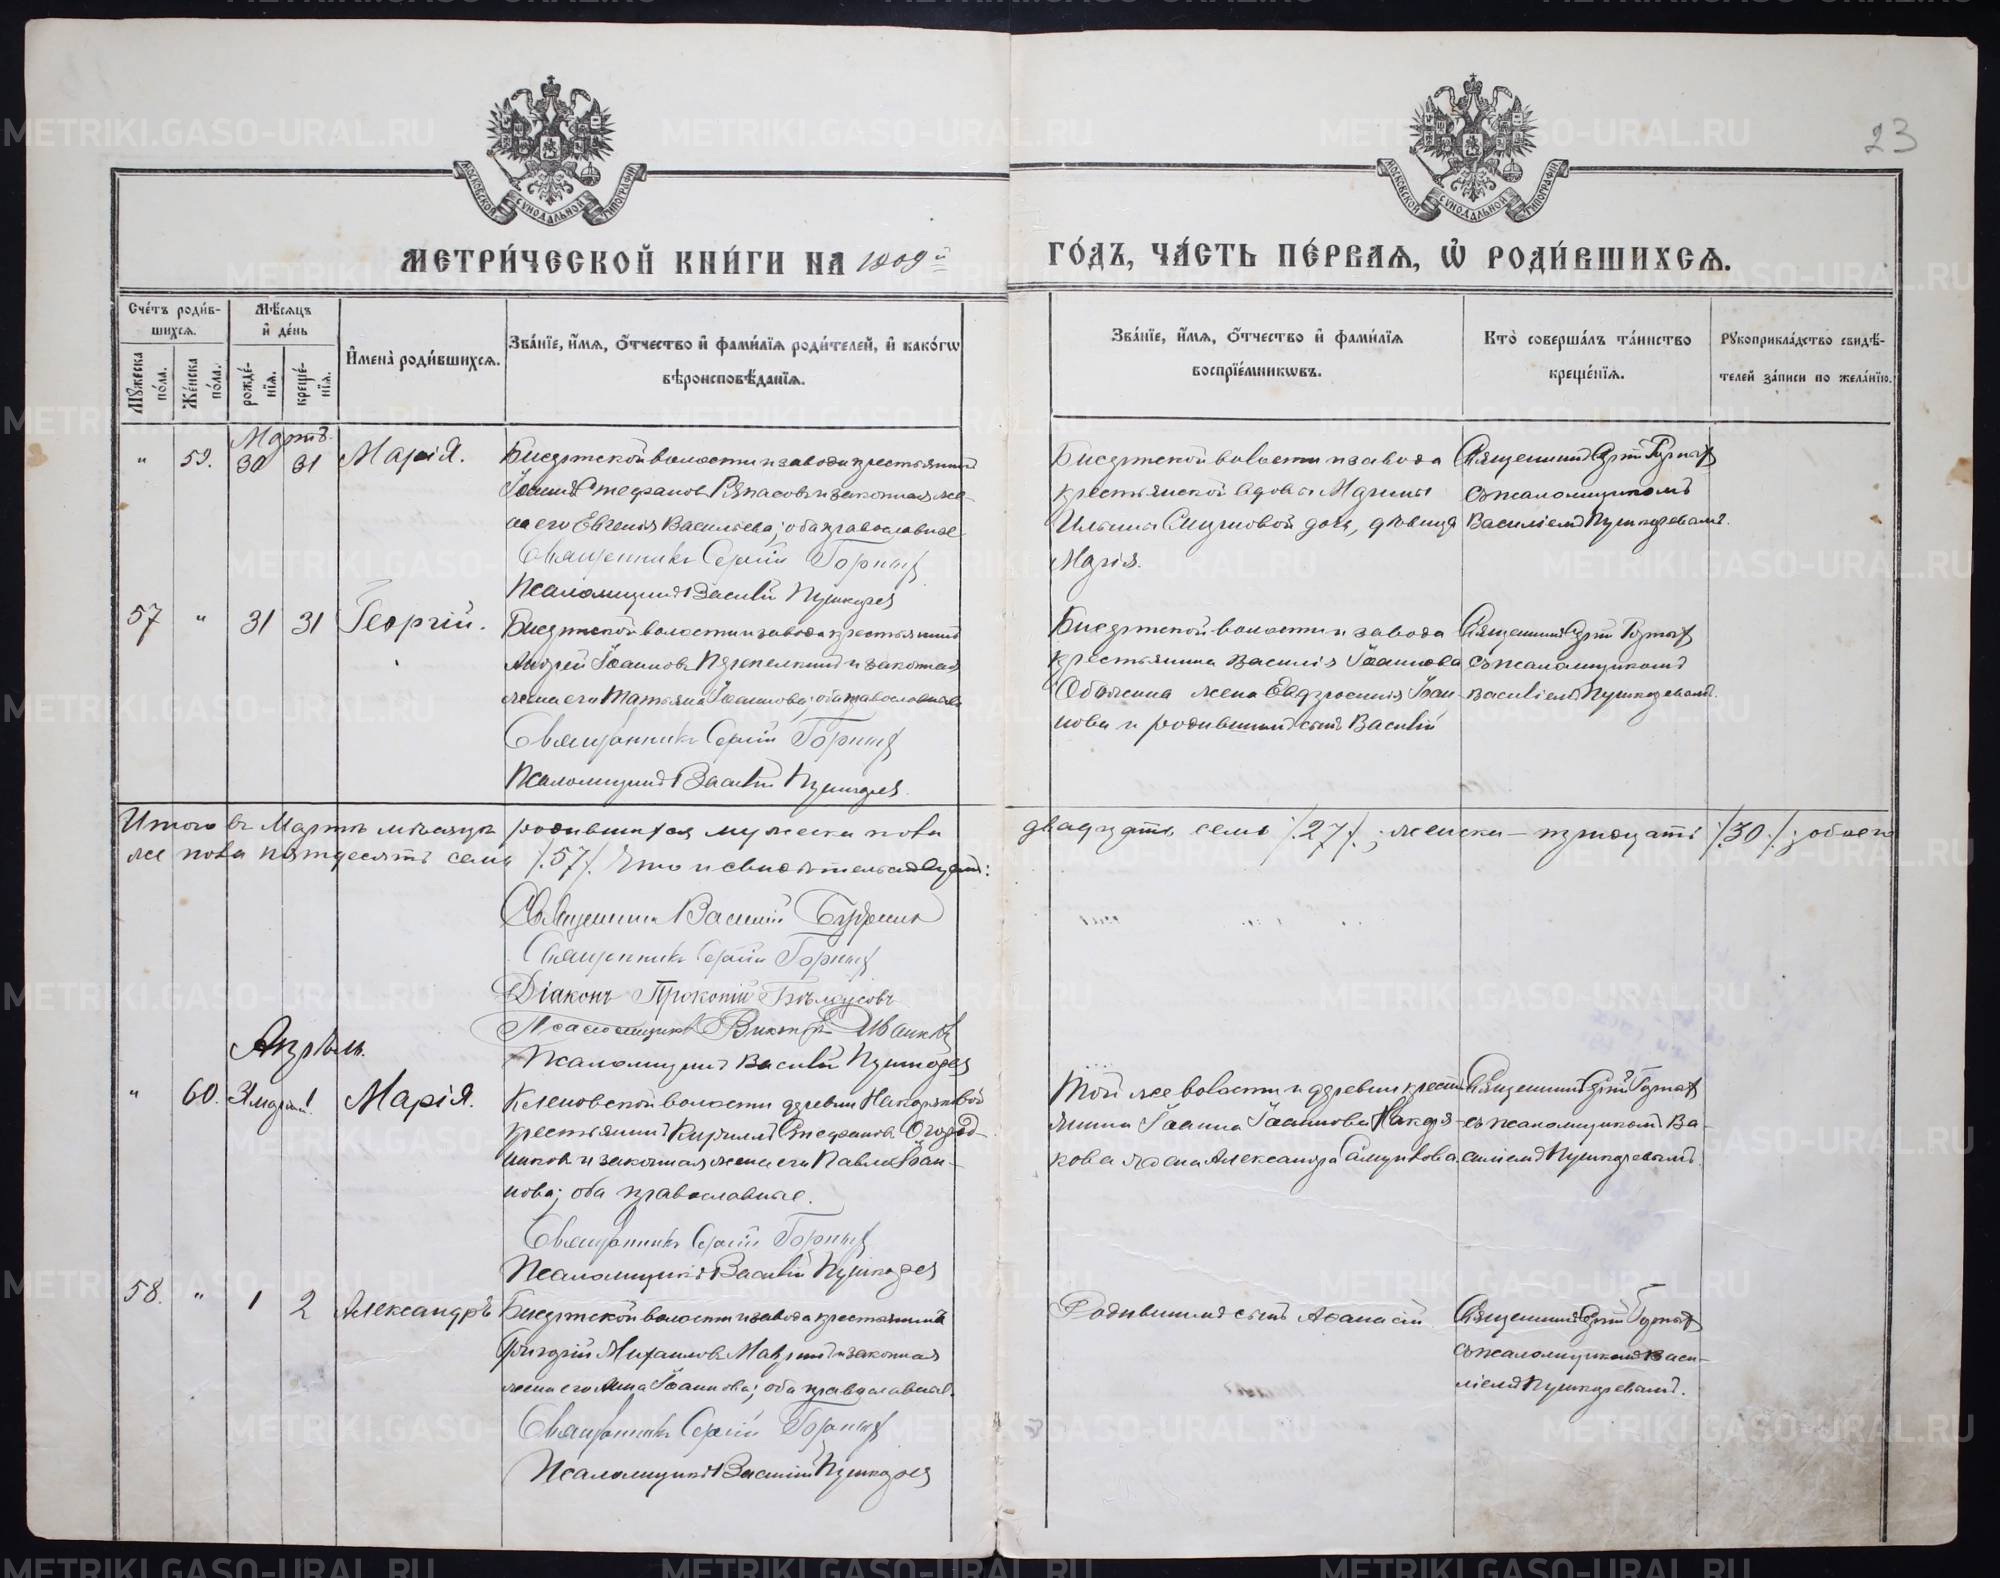 METRIKI.GASO-URAL.RU
23
МОСКОВСКОЙ СѴНОДАЛЬНОЙ ТИПОГРАФІИ
МОСКОВСКОЙ СѴНОДАЛЬНОЙ ТИПОГРАФІИ
МЕТРИ́ЧЕСКОЙ КНИ́ГИ НА 1909й
ГО́ДЪ, ЧА́СТЬ ПЕ́РВАѦ, Ѡ҆ РОДИ́ВШИХСѦ.
Сче́тъ роди́в-
шихсѧ.
Мꙋжеска по́ла.
Же́нска по́ла.
Мѣ́сѧцъ
и҆ де́нь
рожде́-
нїѧ.
креще́-
нїѧ.
И҆мена̀ роди́вшихсѧ.
Зва́нїе, и҆́мѧ, ѻ҆́тчество и҆ фамѝлїѧ роди́телей, и҆ како́гѡ
вѣроисповѣ́данїѧ.
Зва́нїе, и҆́мѧ, ѻ҆́тчество и҆ фамѝлїѧ
воспрїе́мникѡвъ.
Кто̀ соверша́лъ та́инство
креще́нїѧ.
Рꙋкоприкла́дство свидѣ́-
телей за́писи по жела́нїю.
Мартъ
" 59. 30 31 Марія.
Бисертской волости и завода крестьянинъ
Іоаннъ Стефановъ Ряпасовъ и законная же-
на его Евгенія Васильева; оба православные
Священникъ Сергій Горныхъ
Псаломщикъ Василій Пушкаревъ
Бисертской волости и завода
крестьянской вдовы
Ильиной дочь, дѣвица
Марія.
Священникъ Сергій Горныхъ
съ псаломщикомъ
Василіемъ Пушкаревымъ.
57 " 31 31 Георгій.
Бисертской волости и завода крестьянинъ
Андрей Іоанновъ и законная
жена его Татьяна Іоаннова; оба православные
Священникъ Сергій Горныхъ
Псаломщикъ Василій Пушкаревъ.
Бисертской волости и завода
крестьянина Василія Іоаннова
жена Евдокія Іоан-
нова и родившихъ сынъ Василій
Священникъ Сергій Горныхъ
съ псаломщикомъ
Василіемъ Пушкаревымъ.
Итого въ Мартѣ мѣсяцѣ родившихся мужеска пола двадцать семь /.27./; женска – тридцать /.30./; обоего
же пола пятьдесятъ семь /.57./. Что и свидѣтельствуемъ:
Священникъ Василій
Священникъ Сергій Горныхъ
Діаконъ Прокопій Бѣлоусовъ
Псаломщикъ Викторъ
Псаломщикъ Василій Пушкаревъ
Апрѣль.
" 60. 31 марта 1. Марія.
Кленовской волости деревни Накоряковой
крестьянинъ Кириллъ Стефановъ Огород-
никовъ и законная жена его Павла Іоан-
нова; оба православные.
Священникъ Сергій Горныхъ
Псаломщикъ Василій Пушкаревъ
Той же волости и деревни кресть-
янина Іоанна Іоаннова Накоря-
кова жена Александра
Священникъ Сергій Горныхъ
съ псаломщикомъ Ва-
силіемъ Пушкаревымъ.
58. " 1 2 Александръ
Бисертской волости и завода крестьянинъ
Григорій Михаиловъ и законная
жена его Анна Іоаннова; оба православные.
Священникъ Сергій Горныхъ
Псаломщикъ Василій Пушкаревъ
Родившихъ сынъ Аѳанасій
Священникъ Сергій Горныхъ
съ псаломщикомъ Васи-
ліемъ Пушкаревымъ.